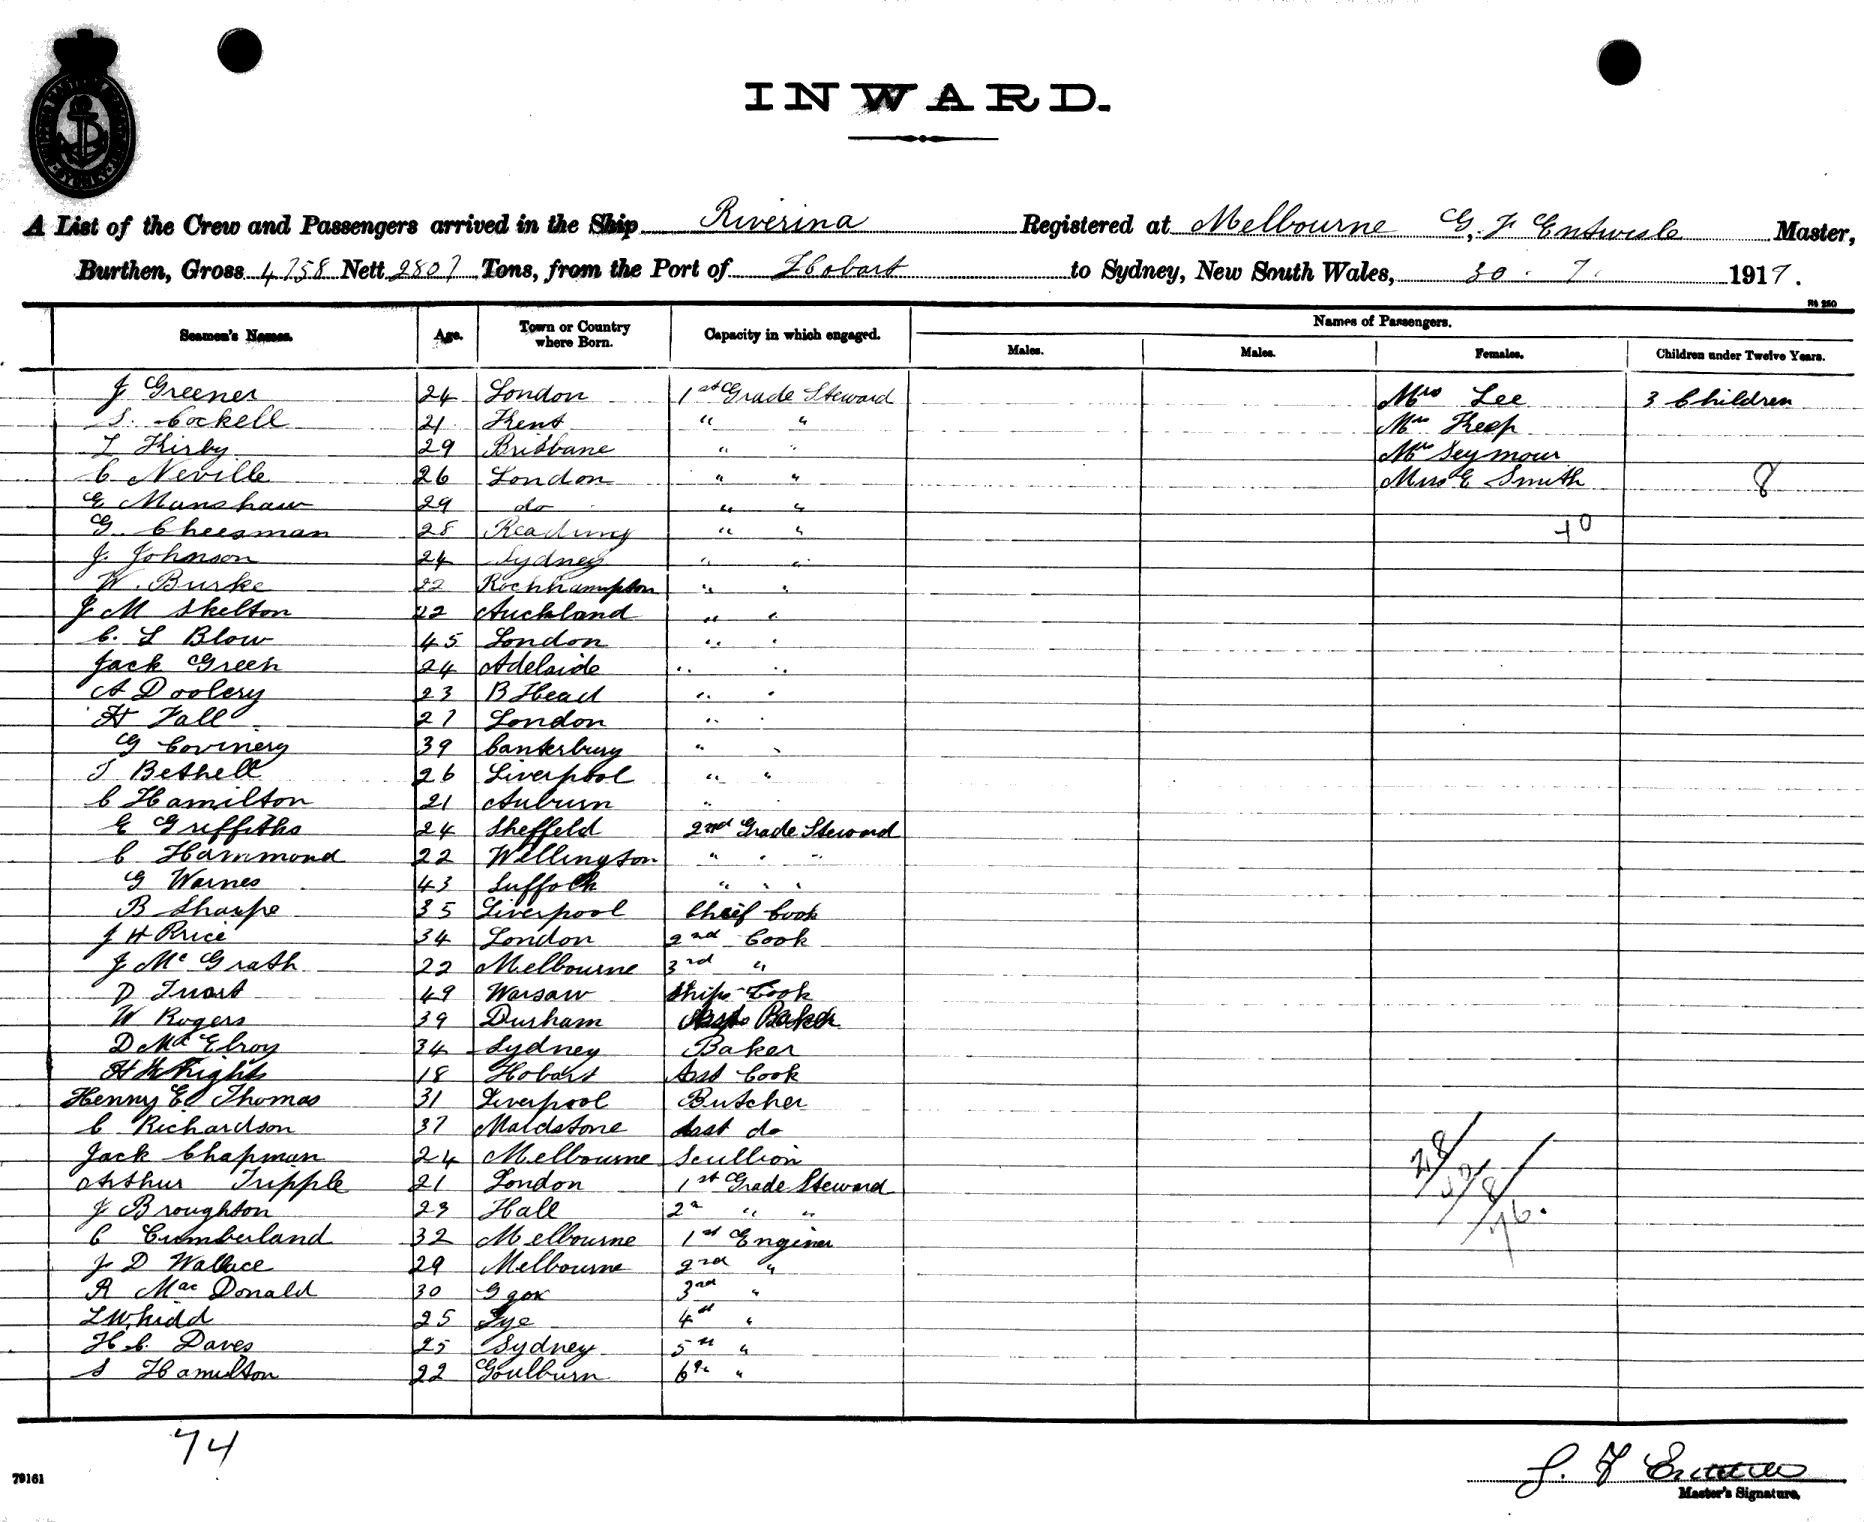 INWARD.
A List of the Crew and Passengers arrived in the Ship Riverina Registered at Melbourne G, F Entwisle Master,
Burthen, Gross 4758 Nett 2807 Tons, from the Port of Hobart to Sydney, New South Wales, 30 . 7. 1917.
Names of Passengers.
Seamen's Names. Age. Town or Country where Born. Capacity in which engaged. Males. Males. Females. Children under Twelve Years.
J Greener 24 London 1st Grade Steward Mrs Lee 3 Children
S. Cockell 21 Kent " " Mrs Keep
T Kirby 29 Brisbane " " Mrs Seymour
C Neville 26 London " " Miss E Smith 8
E Munshaw 29 do " "
G. Cheesman 28 Reading " " 40
J. Johnson 24 Sydney " "
W. Burke 22 Rockhampton " "
J M Skelton 22 Auckland " "
C. L Blow 45 London " "
Jack Green 24 Adelaide " "
A Doolery 23 B Head " "
H Fall 27 London " "
G Covinery 39 Canterbury " "
T Bethell 26 Liverpool " "
C Hamilton 21 Auburn " "
E Griffiths 24 Sheffeld 2nd Grade Steward
C Hammond 22 Wellington " " "
G Warnes 43 Suffolk " " "
B Sharpe 35 Liverpool Chief Cook
J H Price 34 London 2nd Cook
J Mc Grath 22 Melbourne 3rd "
D 49 Warsaw Ships Cook
W Rogers 39 Durham Baker
D Mc Elroy 34 Sydney Baker
H Knights 18 Hobart Asst Cook
Henny E Thomas 31 Liverpool Butcher
C Richardson 37 Maidstone Asst do
Jack Chapman 24 Melbourne Scullion
Arthur Tripple 21 London 1st Grade Steward
J Broughton 23 Hall 2n " "
C Cumberland 32 Melbourne 1st Enginer
J D Wallace 29 Melbourne 2nd "
R Mac Donald 30 3rd "
L Whidd 25 4th "
H. C. Daves 25 Sydney 5th "
S Hamilton 22 Goulburn 6th "
28/
8/
76.
74
79161
Master's Signature.